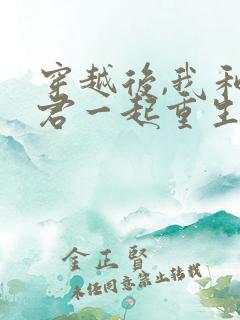 穿越後,我和
君一起重生
金正賢
未經同意禁止轉載